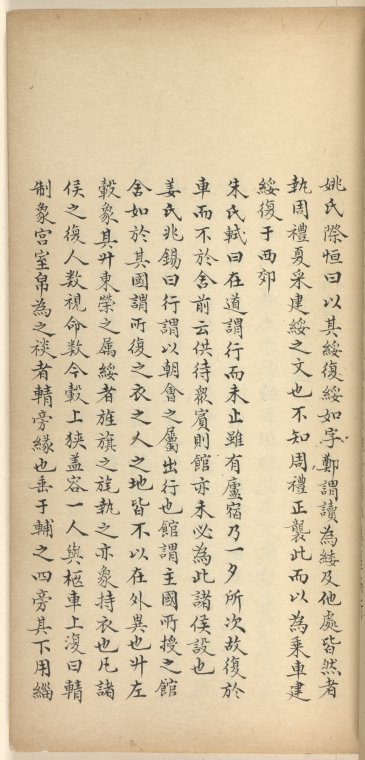 姚氏際恒曰以其綏復綏如字鄭謂讀為緌及他處皆然者
執周禮夏采建綏之文也不知周禮正襲此而以為乘車建
綏復于西郊
朱氏軾曰在道謂行而未止雖有廬宿乃一夕所次故復於
車而不於舍前云供待衆賓則館亦未必為此諸侯設也
姜氏兆錫曰行謂以朝會之屬出行也館謂主國所授之館
舍如於其國謂所復之衣之人之地皆不以在外異也升左
轂象其升東榮之屬綏者旌旗之旄執之亦象持衣也凡諸
侯之復人数視命数今轂上狹盖容一人與柩車上湏曰輤
制象宮室帛為之裧者輤旁緣也垂于輔之四旁其下用緇